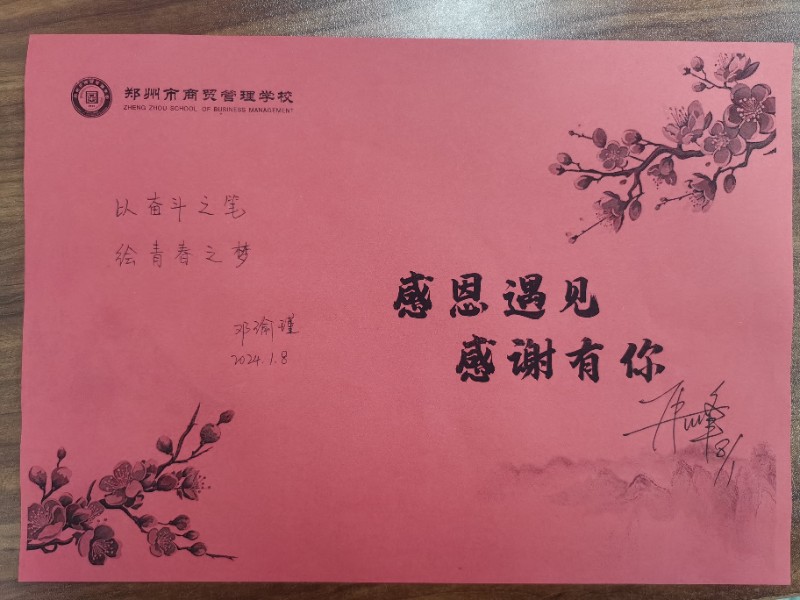 郑州市商贸管理学校
ZHENG ZHOU SCHOOL OF BUSINESS MANAGEMENT
以奋斗之笔
绘青春之梦
邓瑜瑾
2024.1.8
感恩遇见
感谢有你
8/1